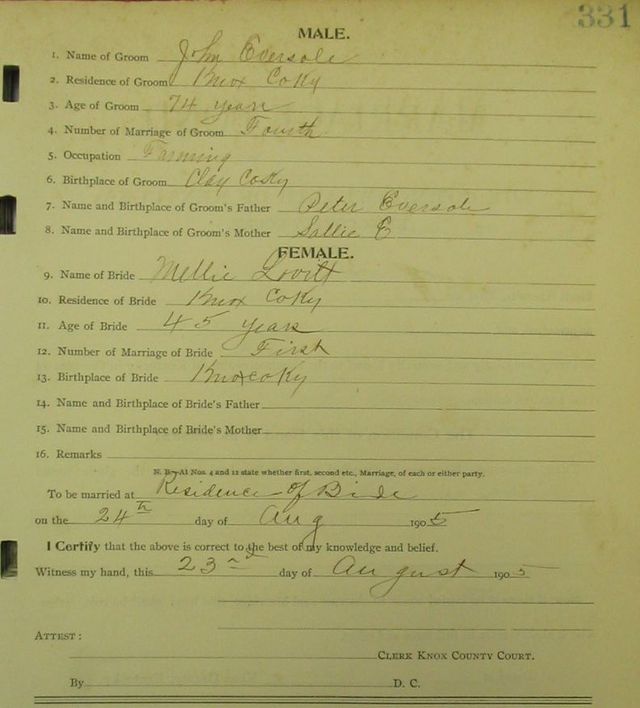 331
MALE.
1. Name of Groom John Eversole
2. Residence of Groom Knox Co Ky
3. Age of Groom 74 years
4. Number of Marriage of Groom Fourth
5. Occupation Farming
6. Birthplace of Groom Clay Co Ky
7. Name and Birthplace of Groom's Father Peter Eversole
8. Name and Birthplace of Groom's Mother Sallie E
FEMALE.
9. Name of Bride Mellie Lovitt
10. Residence of Bride Knox Co Ky
11. Age of Bride 45 years
12. Number of Marriage of Bride First
13. Birthplace of Bride Knox Co Ky
14. Name and Birthplace of Bride's Father
15. Name and Birthplace of Bride's Mother
16. Remarks
N. B.—At Nos. 4 and 12 state whether first, second etc., Marriage, of each or either party.
To be married at Residence of Bride
on the 24th day of Aug 1905
I Certify that the above is correct to the best of my knowledge and belief.
Witness my hand, this 23rd day of August 1905
ATTEST:
CLERK KNOX COUNTY COURT.
By D. C.